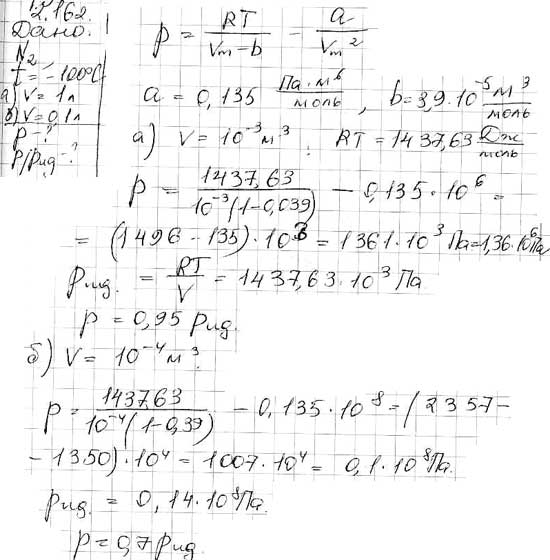 2.162.
Дано:
N₂
t = -100°C
а) V = 1 л
б) V = 0,1 л
p - ?
p/pид - ?
p = RT/(Vm - b) - a/Vm²
a = 0,135 Па·м⁶/моль, b = 3,9·10⁻⁵ м³/моль
а) V = 10⁻³ м³; RT = 1437,63 Дж/моль
p = 1437,63/(10⁻³(1-0,039)) - 0,135·10⁶ =
= (1496 - 135)·10³ = 1361·10³ Па = 1,36·10⁶ Па
pид. = RT/V = 1437,63·10³ Па
p = 0,95 pид.
б) V = 10⁻⁴ м³.
p = 143763/(10⁻⁴(1-0,39)) - 0,135·10⁸ = (2357-
- 1350)·10⁴ = 1007·10⁴ = 0,1·10⁸ Па.
pид. = 0,14·10⁸ Па.
p = 0,7 pид.